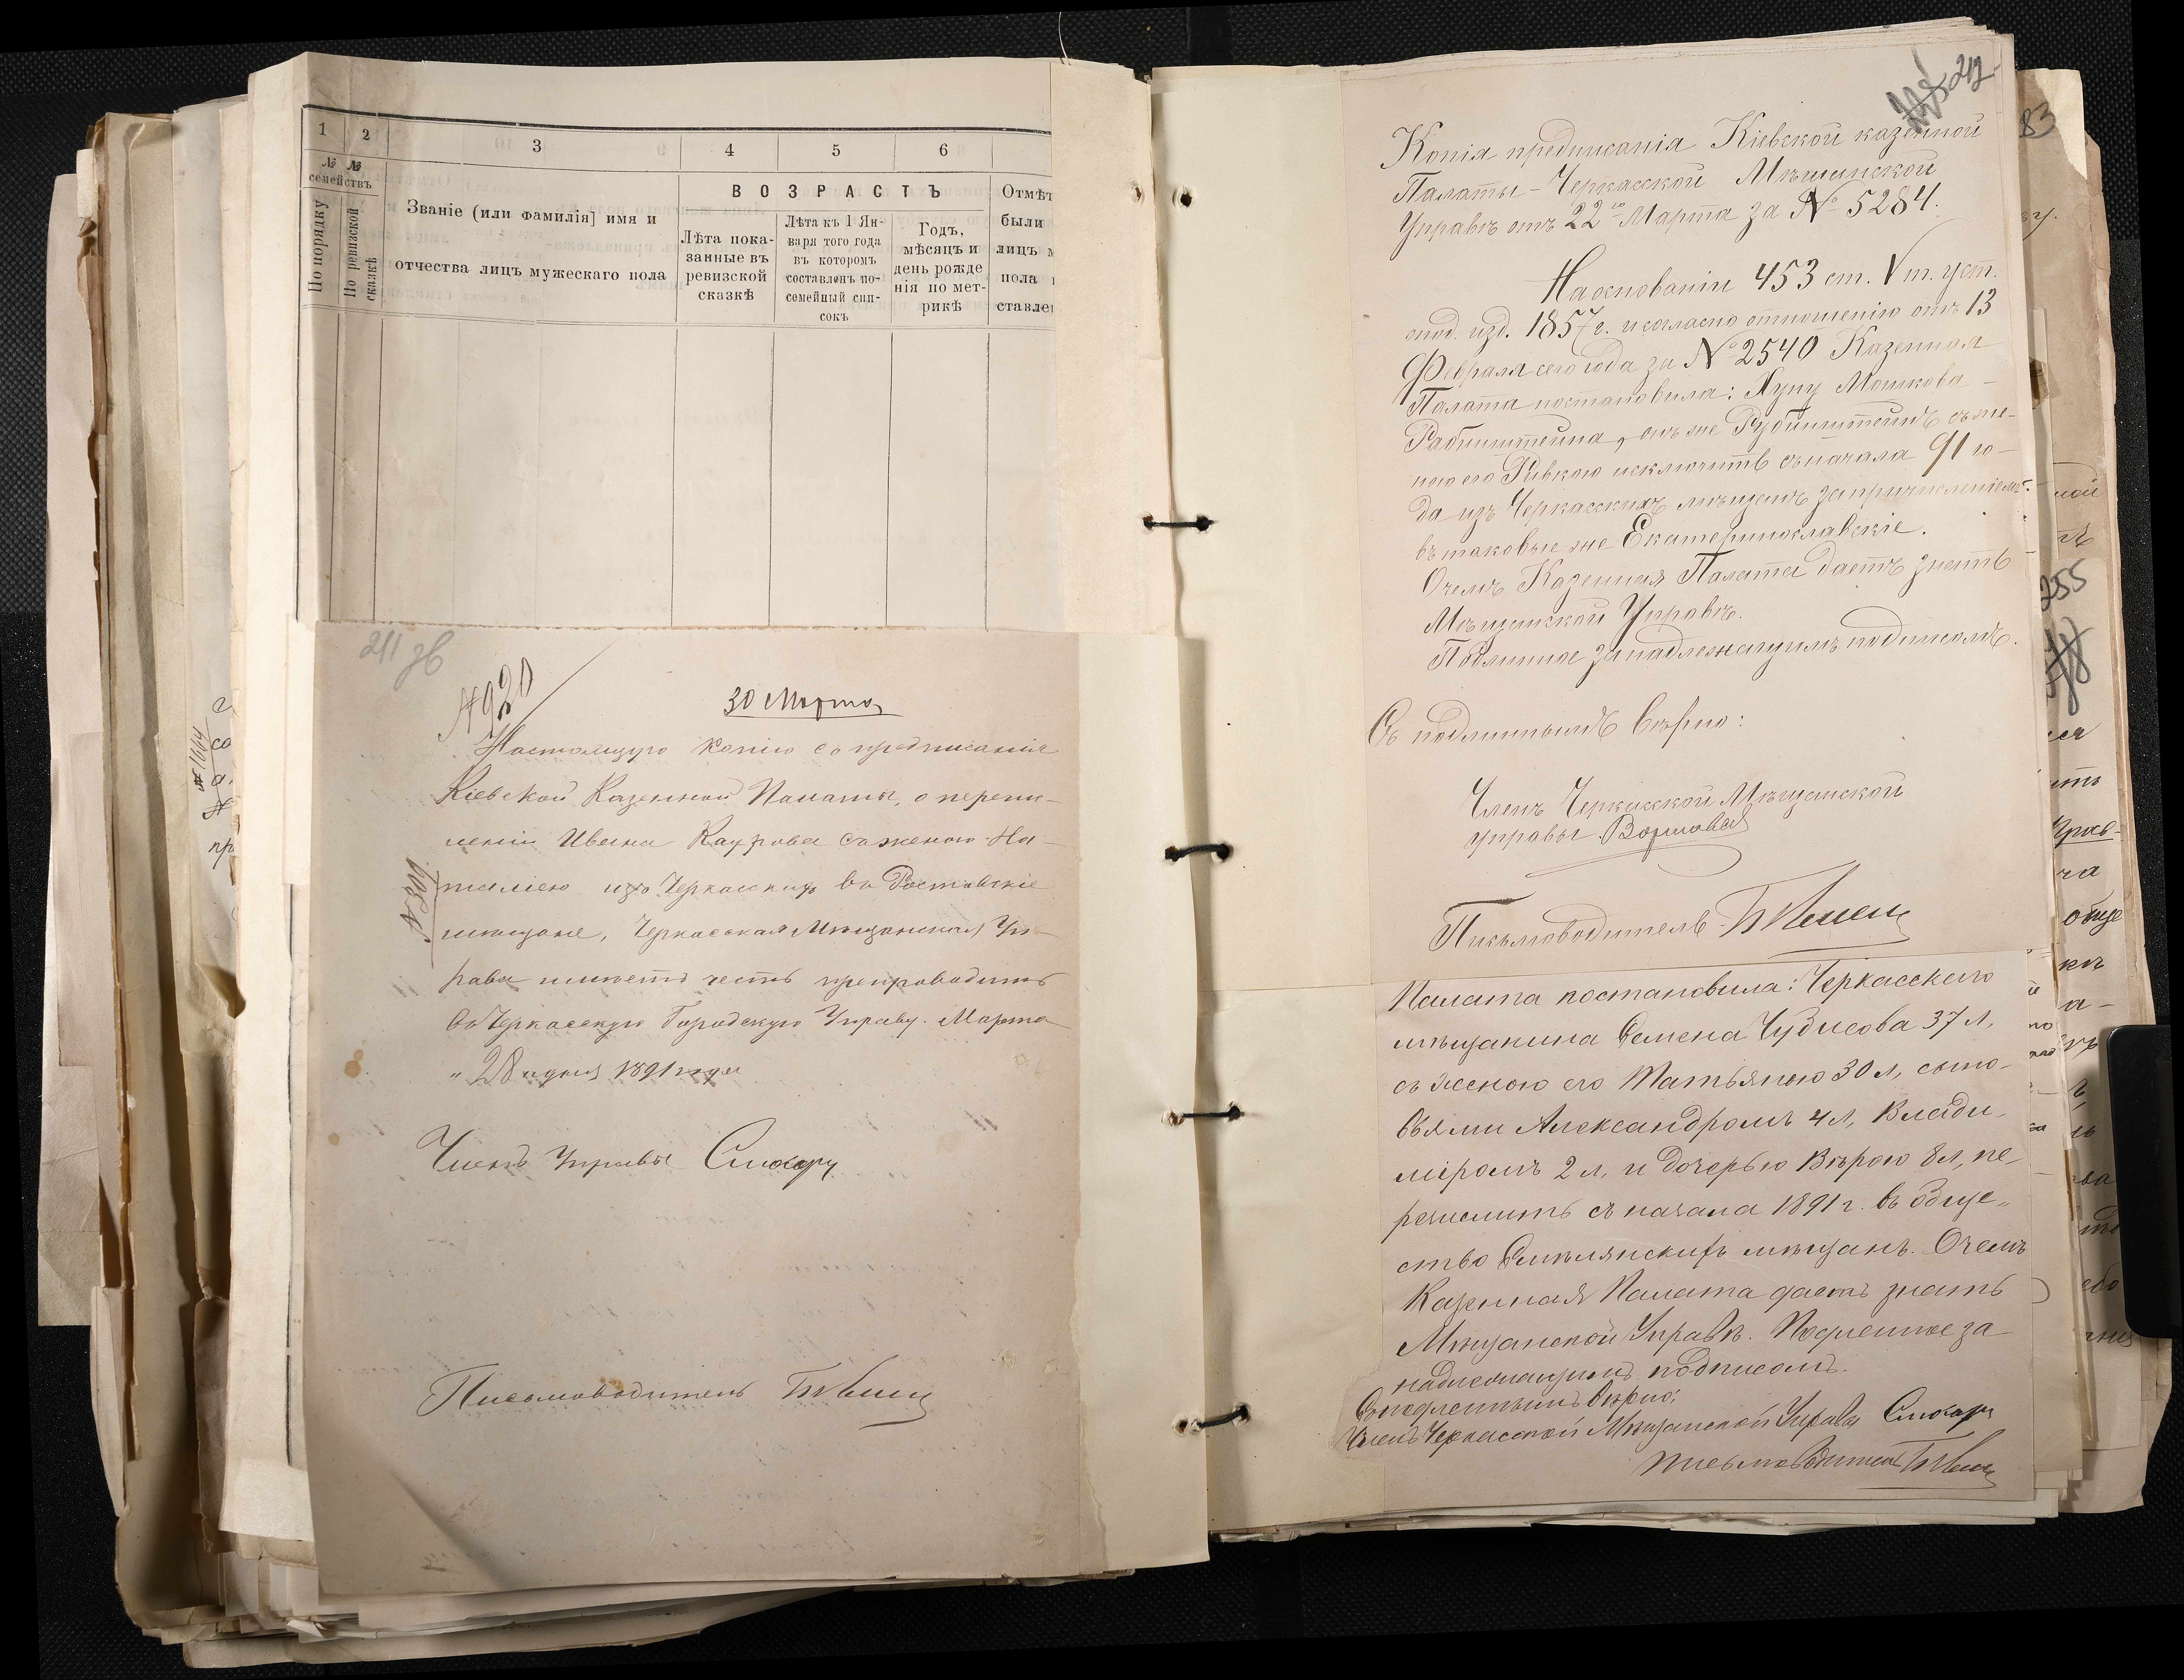 1 2 3 4 5 6
№ № семействъ
По порядку
По ревизской сказкѣ
Званіе (или фамилія] имя и
отчества лицъ мужескаго пола
ВОЗРАСТЪ
Лѣта пока-
занные въ
ревизской
сказкѣ
Лѣта къ 1 Ян-
варя того года
въ которомъ
составленъ по-
семейный спи-
сокъ
Годъ,
мѣсяцъ и
день рожде
нія по мет-
рикѣ
Отмѣт
были
лицъ м
пола
ставле
211 зв
№ 920
30 Марта
Настоящую копію съ предписанія
Кіевской Казенной Палаты, о перечи-
сленіи Ивана Каурова съ женою На-
таліею изъ Черкасскихъ въ Ростовскіе
мѣщане, Черкасская Мѣщанская Уп-
рава имѣетъ честь препроводить
въ Черкасскую Городскую Управу. Марта
" 28 " дня 1891 года
Членъ Управы
Письмоводитель
№ 1664
212
Копія предписанія Кіевской казенной
Палаты - Черкасской Мѣщанской
Управѣ отъ 22го Марта за № 5284.
На основаніи 453 ст. V т. уст.
о под. изд. 1857 г. и согласно отношенію отъ 13
Февраля сего года за № 2540 Казенная
Палата постановила: Нуну Мошкова
Рабинштейна, онъ же Рубинштейнъ съ же-
ною его Ривкою исключить съ начала 91 го-
да изъ Черкасскихъ мѣщанъ за причисленіемъ
въ таковые же Екатеринославскіе.
О чемъ Казенная Палата даетъ знать
Мѣщанской Управѣ.
Подлинное за надлежащимъ подписомъ.
Съ подлиннымъ вѣрно:
Членъ Черкасской Мѣщанской
управы
Письмоводитель
Палата постановила: Черкасскаго
мѣщанина Семена Чудисова 37 л,
съ женою его Татьяною 30 л, сыно-
вьями Александромъ 4 л, Влади-
міромъ 2 л, и дочерью Вѣрою 8 л, пе-
речислить съ начала 1891 г. въ обще-
ство Смѣлянскихъ мѣщанъ. О чемъ
Казенная Палата даетъ знать
Мѣщанской Управѣ. Подленное за
надлежащимъ подписомъ.
Съ подленнымъ вѣрно:
Членъ Черкасской Мѣщанской Управы
письмоводитель
83
255